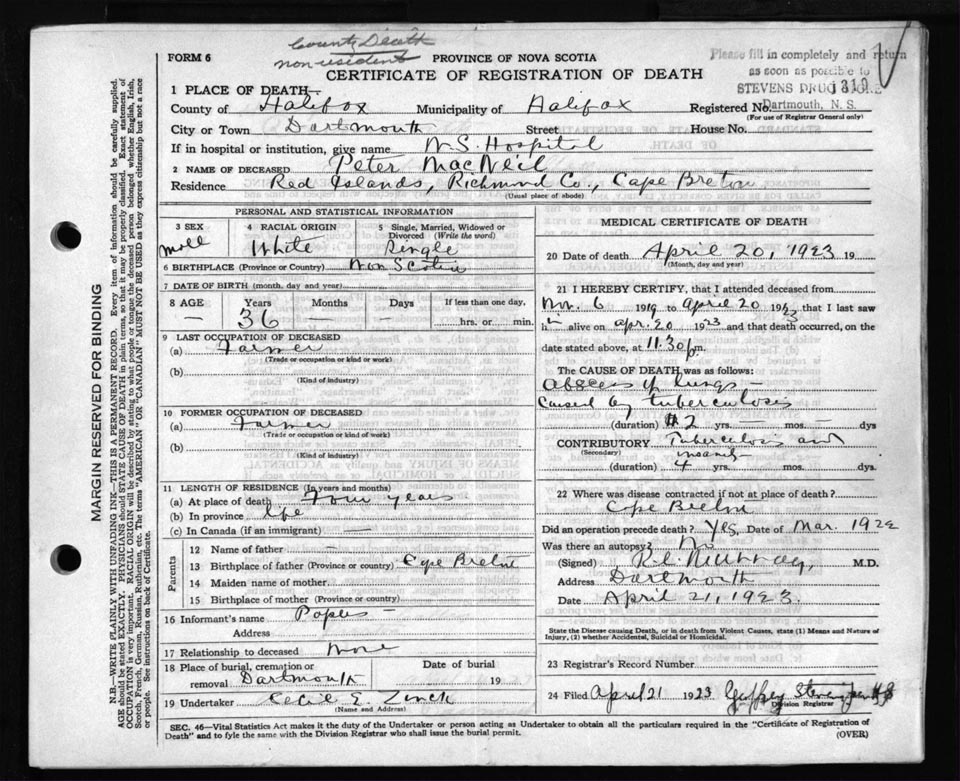 County Death
non resident
FORM 6
PROVINCE OF NOVA SCOTIA
CERTIFICATE OF REGISTRATION OF DEATH
Please fill in completely and return
as soon as possible to
STEVENS DRUG STORE
Dartmouth, N. S.
1 PLACE OF DEATH—
County of Halifax Municipality of Halifax Registered No. 1319
(For use of Registrar General only)
City or Town Dartmouth Street House No.
If in hospital or institution, give name N.S. Hospital
2 NAME OF DECEASED Peter MacNeil
Residence Red Islands, Richmond Co., Cape Breton
(Usual place of abode)
PERSONAL AND STATISTICAL INFORMATION
3 SEX 4 RACIAL ORIGIN 5 Single, Married, Widowed or Divorced (Write the word)
White Single
6 BIRTHPLACE (Province or Country) Nova Scotia
7 DATE OF BIRTH (month, day and year)
8 AGE Years Months Days If less than one day,
— 36 — — hrs. or min.
9 LAST OCCUPATION OF DECEASED
(a) Farmer
(Trade or occupation or kind or work)
(b)
(Kind of industry)
10 FORMER OCCUPATION OF DECEASED
(a) Farmer
(Trade or occupation or kind or work)
(b)
(Kind of industry)
11 LENGTH OF RESIDENCE (In years and months)
(a) At place of death Four years
(b) In province life
(c) In Canada (if an immigrant) —
Parents
12 Name of father —
13 Birthplace of father (Province or country) Cape Breton
14 Maiden name of mother
15 Birthplace of mother (Province or country)
16 Informant's name Papers —
Address
17 Relationship to deceased None
18 Place of burial, cremation or removal Dartmouth Date of burial 19
19 Undertaker Cecil E. Zinck
(Name and Address)
MEDICAL CERTIFICATE OF DEATH
20 Date of death April 20, 1923 19
(Month, day and year)
21 I HEREBY CERTIFY, that I attended deceased from
Nov. 6 1919 to April 20 1923 that I last saw
h— alive on Apr. 20 1923 and that death occurred, on
date stated above, at 11.30 p.m.
The CAUSE OF DEATH was as follows:
Abscess of lungs —
caused by tuberculosis
(duration) 2 yrs. — mos. — dys
CONTRIBUTORY Tuberculosis and
(Secondary) insanity
(duration) 4 yrs. mos. dys.
22 Where was disease contracted if not at place of death?
Cape Breton
Did an operation precede death? Yes, Date of Mar. 1922
Was there an autopsy? No
(Signed) Murray, M.D.
Address Dartmouth
Date April 21, 1923.
State the Disease causing Death, or in death from Violent Causes, state (1) Means and Nature of
Injury, (2) whether Accidental, Suicidal or Homicidal.
23 Registrar's Record Number
24 Filed April 21 1923
Division Registrar
SEC. 46—Vital Statistics Act makes it the duty of the Undertaker or person acting as Undertaker to obtain all the particulars required in the "Certificate of Registration of
Death" and to fyle the same with the Division Registrar who shall issue the burial permit. (OVER)
MARGIN RESERVED FOR BINDING
N.B.—WRITE PLAINLY WITH UNFADING INK—THIS IS A PERMANENT RECORD. Every item of information should be carefully supplied.
AGE should be stated EXACTLY. PHYSICIANS should STATE CAUSE OF DEATH in plain terms, so that it may be properly classified. Exact statement of
OCCUPATION is very important. RACIAL ORIGIN will be described by stating to what people or tongue the deceased person belonged whether English, Irish,
Scotch, French, German, Russian, Ruthenian, etc. The terms "AMERICAN" OR "CANADIAN" MUST NOT BE USED as they express citizenship but not a race
or people. See instructions on back of Certificate.